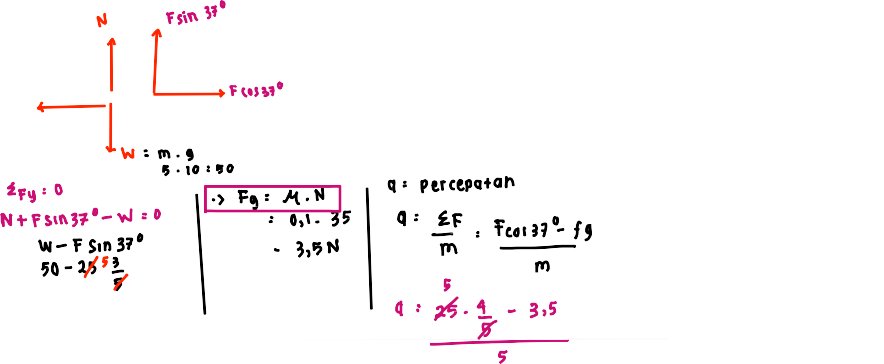 N
F sin 37°
F cos 37°
W = m . g
5 . 10 = 50
ΣFy = 0
N + F sin 37° - W = 0
W - F sin 37°
50 - 25 5 3/5
.> Fg = μ . N
= 0,1 . 35
- 3,5 N
a = percepatan
a = ΣF/m = F cos 37° - fg/m
a = 25 5 . 4/5 - 3,5/5